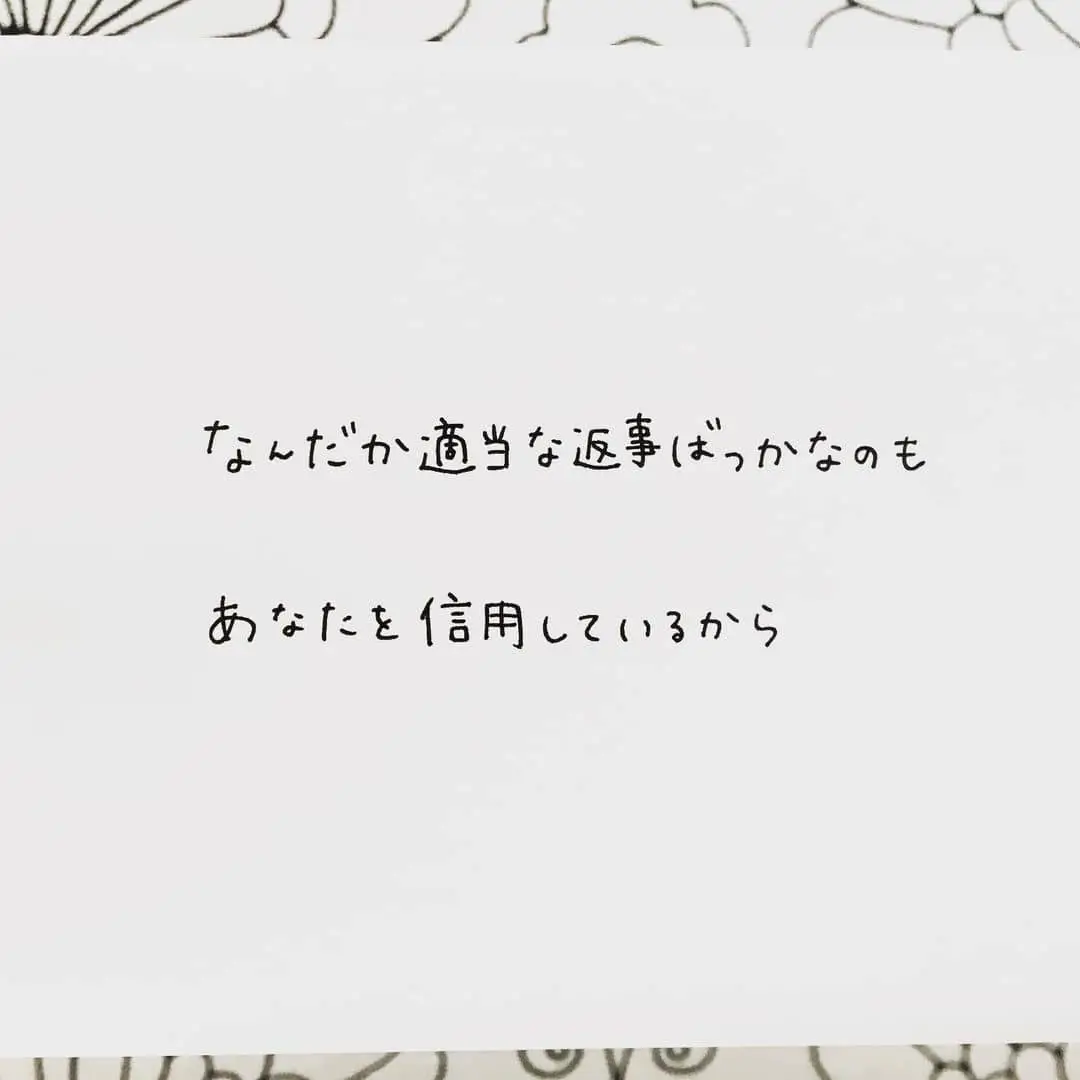 なんだか適当な返事ばっかなのも
あなたを信用しているから